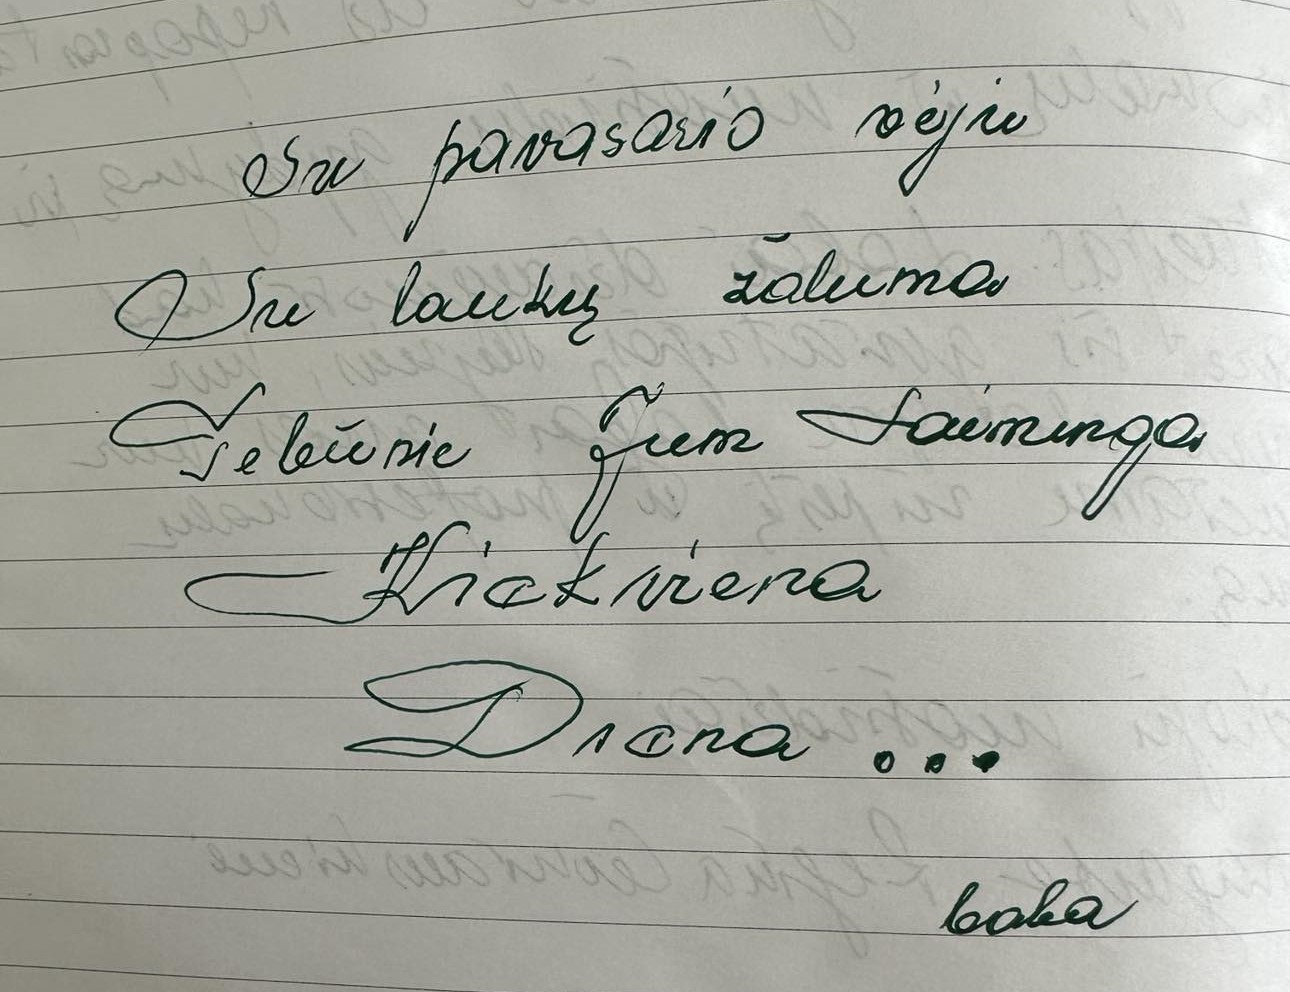 Su pavasario vėju
Su laukų žaluma
Telaiminie Jum Laiminga
Kiekviena
Diena ...
baba